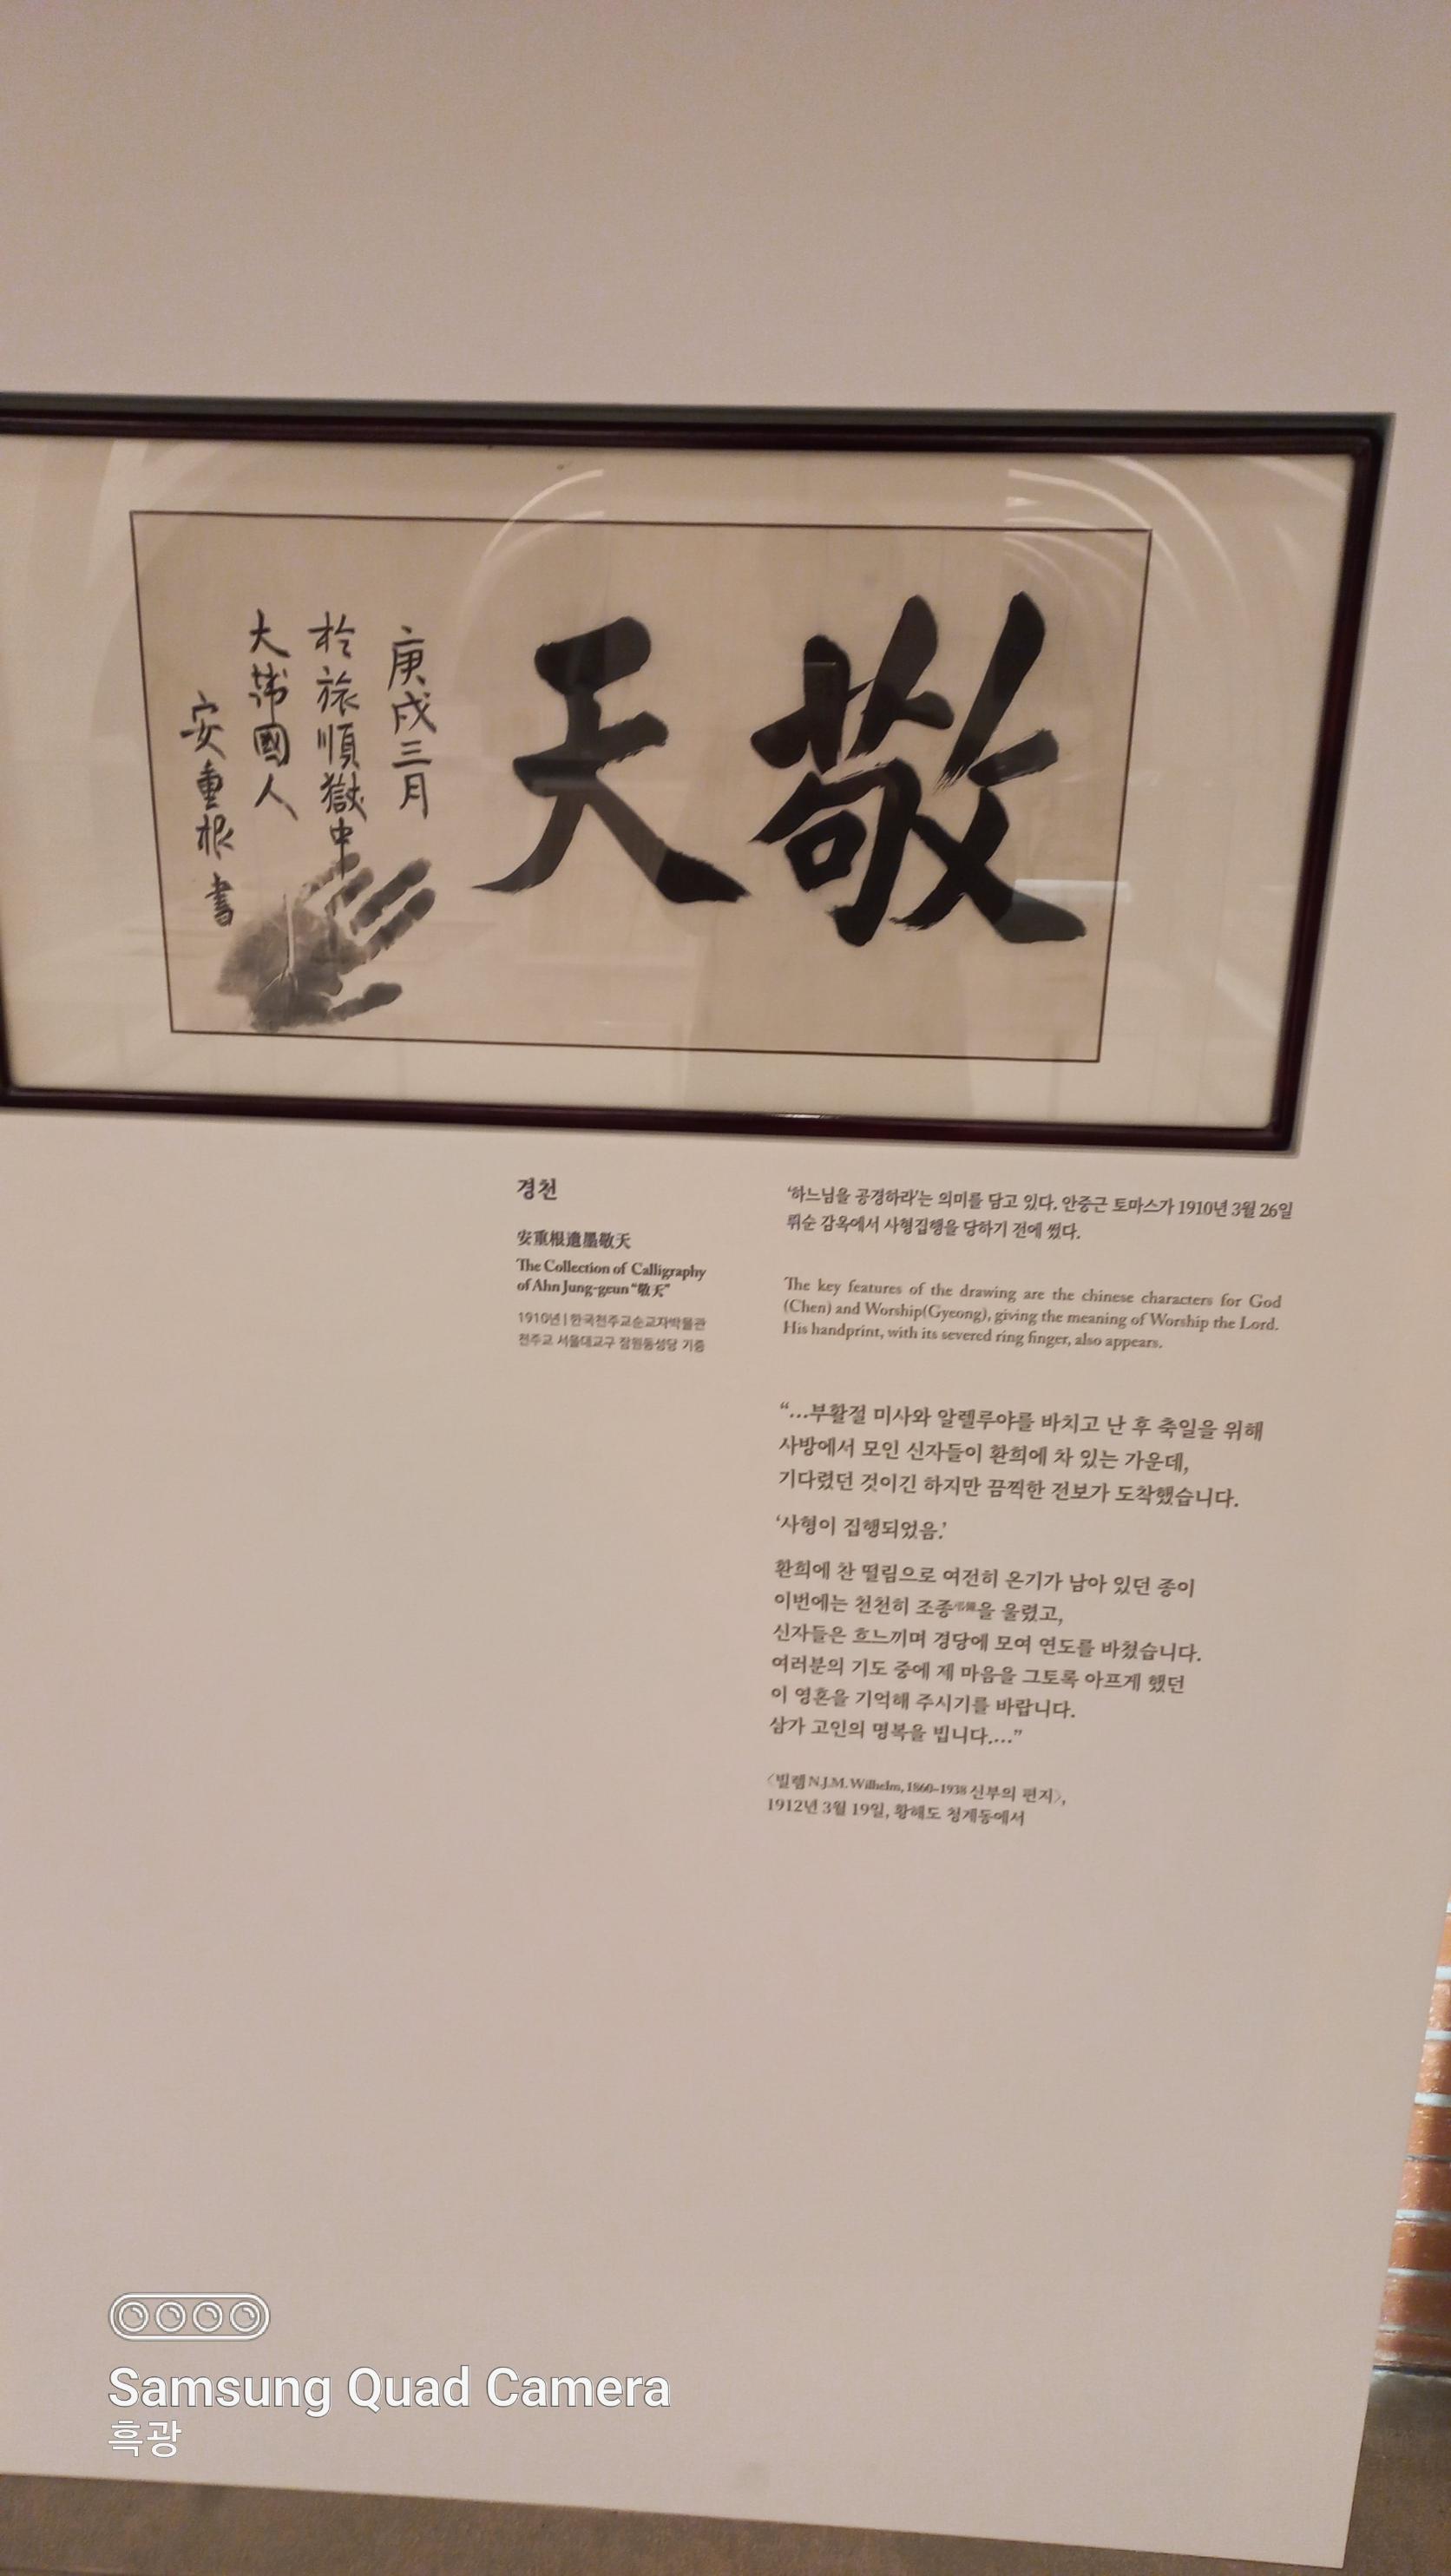 敬天
庚戌三月
於旅順獄中
大韓國人
安重根 書
경천
安重根遺墨敬天
The Collection of Calligraphy
of Ahn Jung-geun “敬天”
1910년 | 한국천주교순교자박물관
천주교 서울대교구 잠원동성당 기증
‘하느님을 공경하라’는 의미를 담고 있다. 안중근 토마스가 1910년 3월 26일
뤼순 감옥에서 사형집행을 당하기 전에 썼다.
The key features of the drawing are the chinese characters for God
(Chen) and Worship(Gyeong), giving the meaning of Worship the Lord.
His handprint, with its severed ring finger, also appears.
“…부활절 미사와 알렐루야를 바치고 난 후 축일을 위해
사방에서 모인 신자들이 환희에 차 있는 가운데,
기다렸던 것이긴 하지만 끔찍한 전보가 도착했습니다.
‘사형이 집행되었음.’
환희에 찬 떨림으로 여전히 온기가 남아 있던 종이
이번에는 천천히 조종을 울렸고,
신자들은 흐느끼며 경당에 모여 연도를 바쳤습니다.
여러분의 기도 중에 제 마음을 그토록 아프게 했던
이 영혼을 기억해 주시기를 바랍니다.
삼가 고인의 명복을 빕니다.…”
〈빌렘 N.J.M. Wilhelm, 1860-1938 신부의 편지〉,
1912년 3월 19일, 황해도 청계동에서
Samsung Quad Camera
흑광